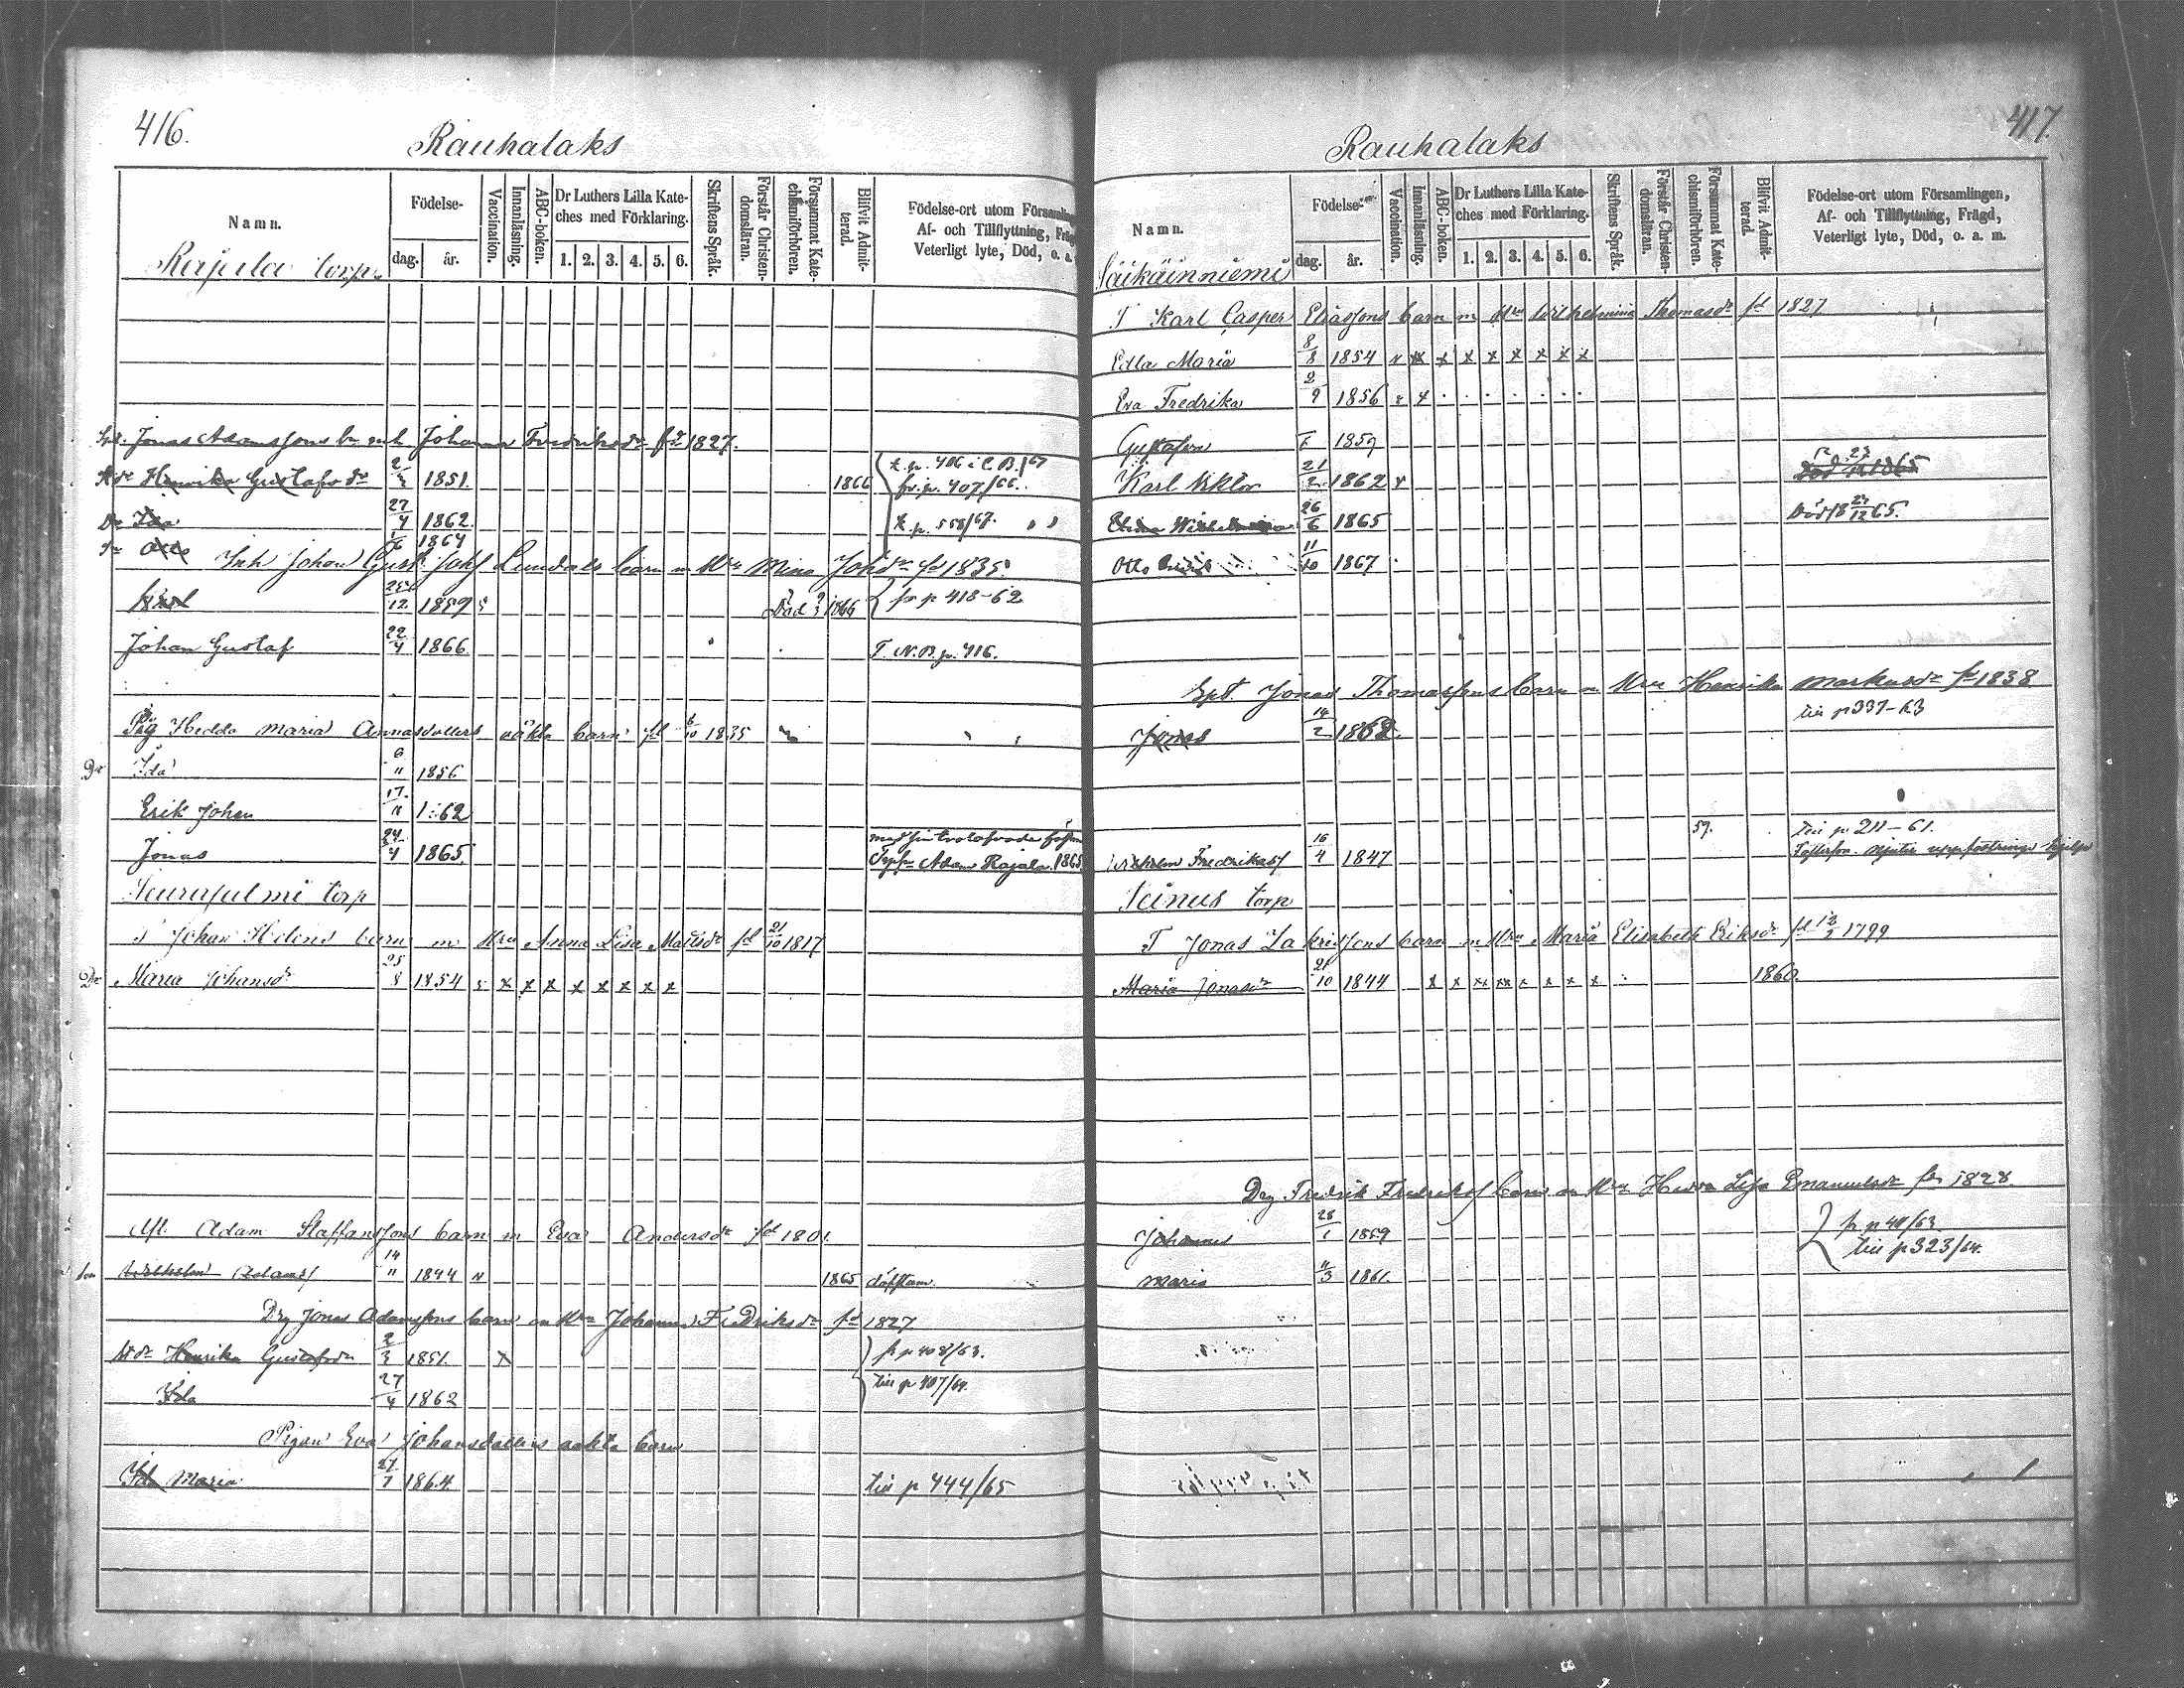 416.
Rauhalaks
Namn.
Födelse-
dag.
år.
Vaccination.
Innanläsning.
ABC-boken.
Dr Luthers Lilla Kate-
ches med Förklaring.
1. 2. 3. 4. 5. 6.
Skriftens Språk.
Förstår Christen-
domsläran.
Försummat Kate-
chismiförhören.
Blifvit Admit-
terad.
Födelse-ort utom Församling
Af- och Tillflyttning, Fräg
Veterligt lyte, Död, o. a.
Rajula torp.
Jonas Adamssons bn m h Johanna Fredriksdr fd 1827.
Henrika Gustafsdr 2/3 1851. 1866 t. p. 406 i C. B./67
fr. p. 407/66.
Dr Ida 27/4 1862 t. p. 558/67. " "
Otto 1864
Inh Johan Gust Johs Lundals barn m Hru Mina Johdr fd 1835.
Karl 25/12 1859 Död 1866 fr p 418-62
Johan Gustaf 22/4 1866 F. N.B. p. 416.
Pig Hedda Maria Annasdotters oäkta barn fd 6/10 1835
Dr Ida 6/11 1856
Erik Johan 17/11 1862
Jonas 24/4 1865 Adam Rajala 1865
Seurasulmi torp
T Johan Helens barn m Hru Anna Lisa Mattsdr fd 21/10 1817
Dr Maria Johansdr 25/8 1854 x x x x x x x x
Afl. Adam Staffanssons barn m Eva Andersdr fd 1801.
Son Wilhelm Adamsf 14/11 1844 " 1865 döfstum.
Drg Jonas Adamssons barn m Hru Johanna Fredriksdr fd 1827
Henrika Gustafsdr 2/3 1851. x fr p 408/63.
till p 407/64.
Ida 27/4 1862
Pigan Eva Johansdotters oäkta barn
Ida Maria 27/7 1864 till p 444/65
417.
Rauhalaks
Namn.
Födelse-
dag.
år.
Vaccination.
Innanläsning.
ABC-boken.
Dr Luthers Lilla Kate-
ches med Förklaring.
1. 2. 3. 4. 5. 6.
Skriftens Språk.
Förstår Christen-
domsläran.
Försummat Kate-
chismiförhören.
Blifvit Admit-
terad.
Födelse-ort utom Församlingen,
Af- och Tillflyttning, Frägd,
Veterligt lyte, Död, o. a. m.
Säikäinniemi
T Karl Casper Eliassons barn m Hru Wilhelmina Thomasdr fd 1827
Edla Maria 8/8 1854 x x x x x x x x
Eva Fredrika 2/9 1856
1859
Karl Viktor 21/2 1862
Wilhelmina 26/6 1865 Död 27/12 65.
Otto 11/10 1867
Spt. Jonas Thomassons barn m Hru Henrika Markusdr fd 1838
Jonas 14/2 1862 till p 337-63
59. till p 211-61.
Wilhelm Fredriksf 16/4 1847 Fosterson. Njuter uppfostrings hjelp
Seinus torp
T Jonas Zakrissons barn m Hru Maria Elisabeth Eriksdr fd 1799
Maria Jonasdr 21/10 1844 x x xx xx x x x x 1860.
Drg Fredrik Fredriksf barn m Hru Hedda Lisa Emanuelsdr fd 1828.
Johannes 28/1 1859 fr p 40/63
till p 323/64.
Maria 11/3 1861.